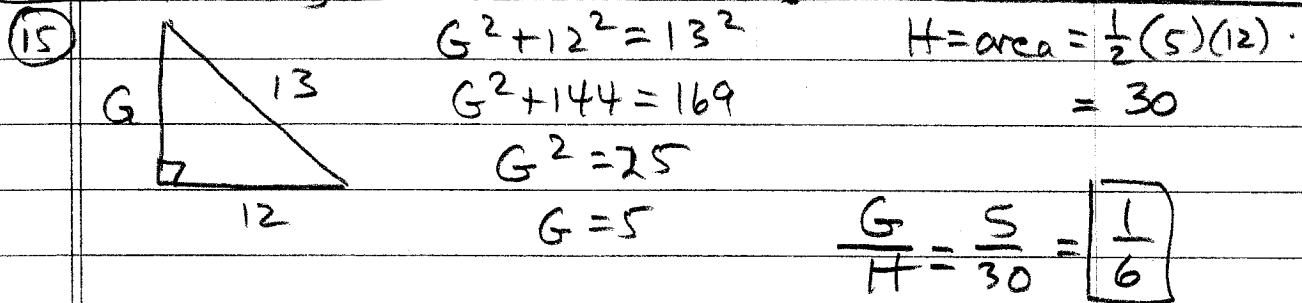 15
G
13
12
G²+12²=13²
G²+144=169
G²=25
G=5
H=area=½(5)(12).
=30
G/H=5/30=1/6